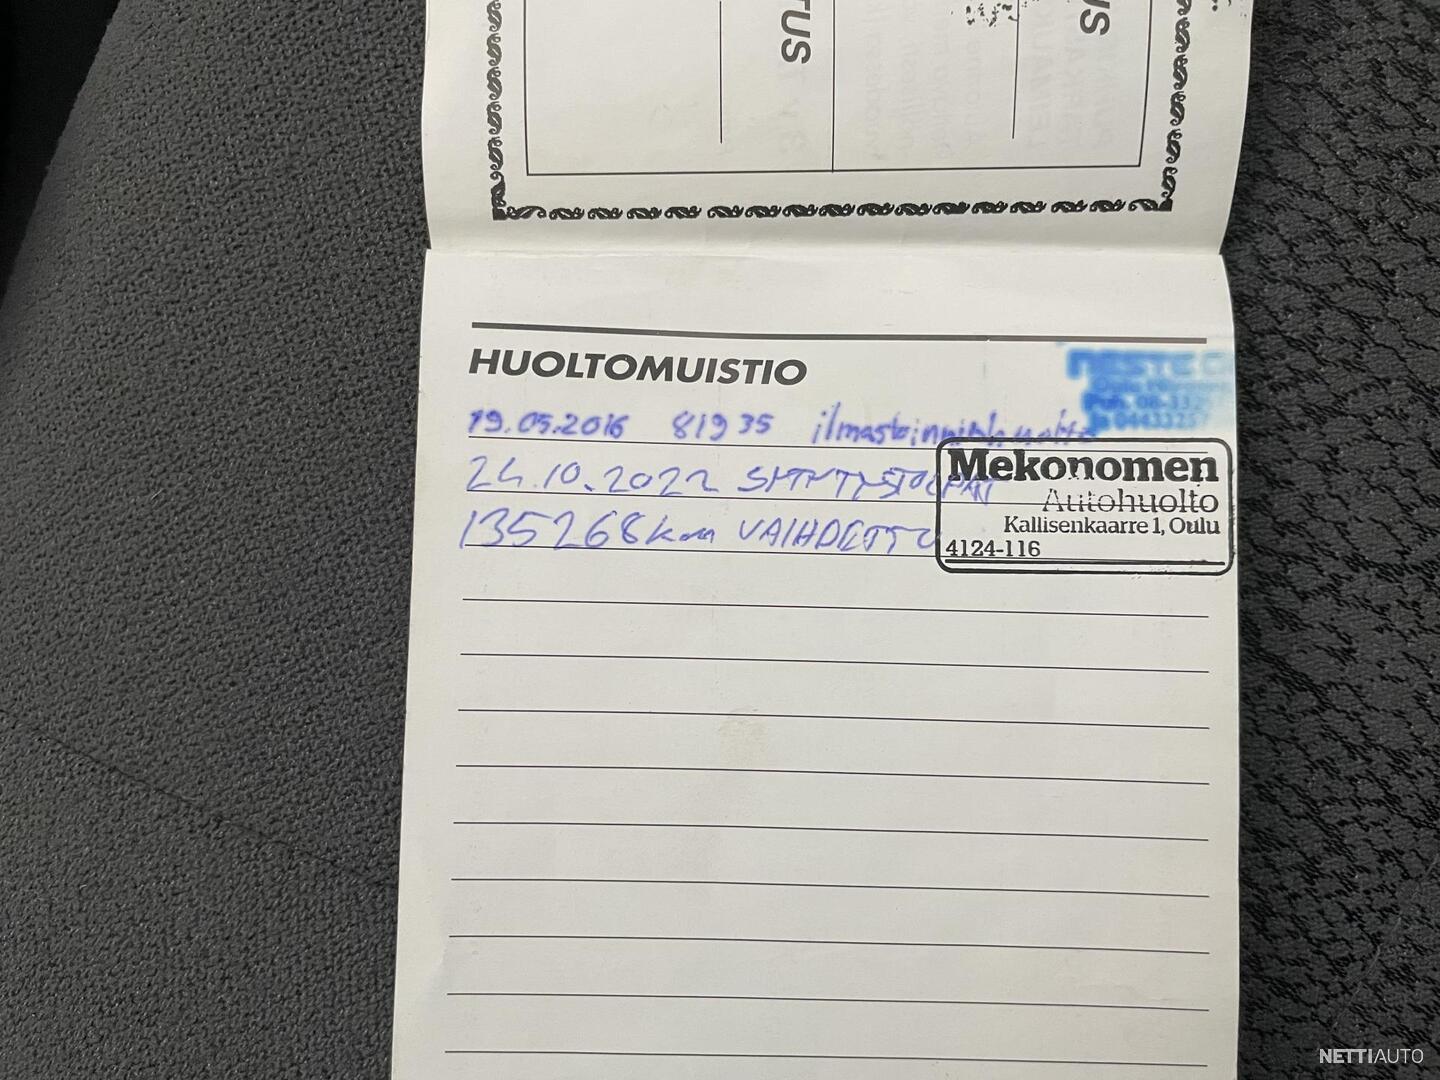 TUS
US
HUOLTOMUISTIO
NESTE
19.05.2016 81935 ilmastoinninhuolto
24.10.2022 SYTYTYSTULPAT
135268km VAIHDETTU
Mekonomen
Autohuolto
Kallisenkaarre 1, Oulu
4124-116
NETTIAUTO